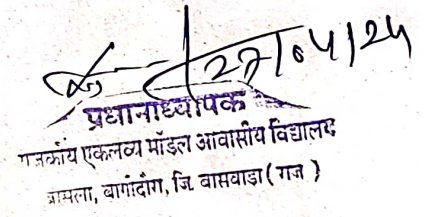 27/04/24
प्रधानाध्यापक
राजकीय एकलव्य मॉडल आवासीय विद्यालय
बागीदौरा, जि. बासवाड़ा ( राज )